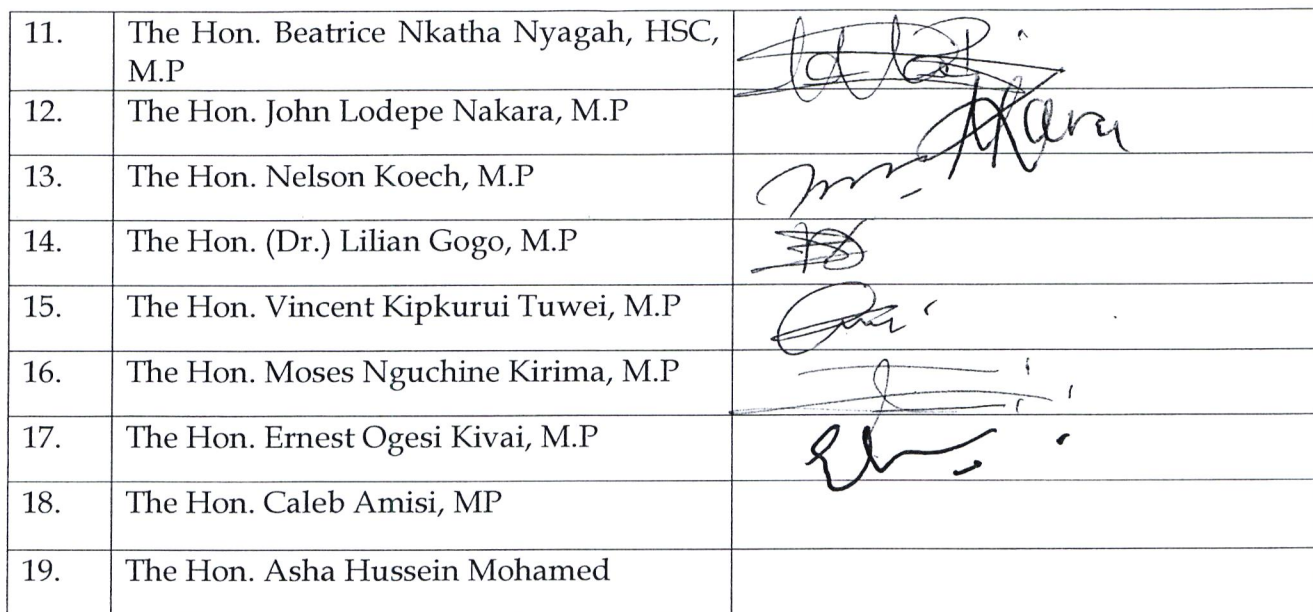 11. The Hon. Beatrice Nkatha Nyagah, HSC,
M.P
12. The Hon. John Lodepe Nakara, M.P
13. The Hon. Nelson Koech, M.P
14. The Hon. (Dr.) Lilian Gogo, M.P
15. The Hon. Vincent Kipkurui Tuwei, M.P
16. The Hon. Moses Nguchine Kirima, M.P
17. The Hon. Ernest Ogesi Kivai, M.P
18. The Hon. Caleb Amisi, MP
19. The Hon. Asha Hussein Mohamed